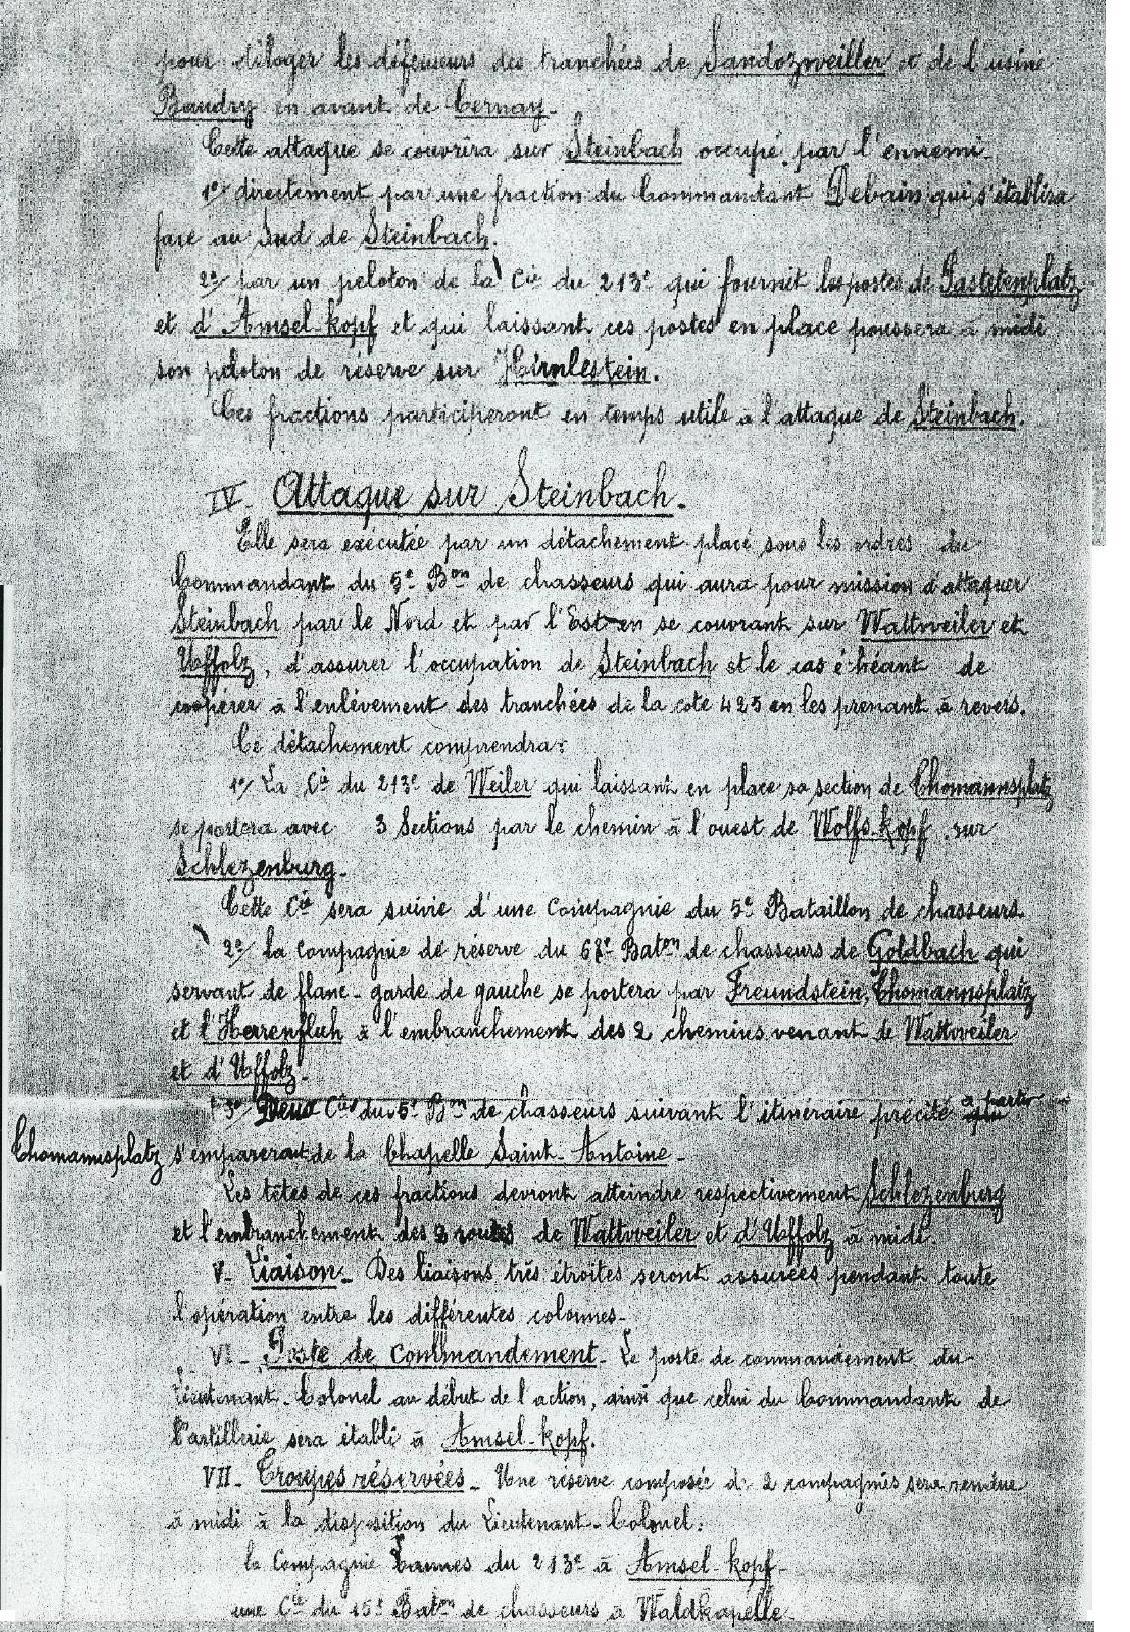 pour déloger les défenseurs des tranchées de Sandozweiller et de l'usine
Baudry en avant de Cernay.
Cette attaque se couvrira sur Steinbach occupé par l'ennemi.
1º/ directement par une fraction du Commandant Debain qui s'établira
face au Sud de Steinbach.
2º/ par un peloton de la Cie du 213e qui fournit les postes de Pastetenplatz
et d'Amsel-kopf et qui laissant ces postes en place poussera à midi
son peloton de réserve sur Hirnlestein.
Ces fractions participeront en temps utile à l'attaque de Steinbach.
IV_ Attaque sur Steinbach.
Elle sera exécutée par un détachement placé sous les ordres du
Commandant du 5e Bon de chasseurs qui aura pour mission d'attaquer
Steinbach par le Nord et par l'Est en se couvrant sur Wattweiler et
Uffolz, d'assurer l'occupation de Steinbach et le cas échéant de
coopérer à l'enlèvement des tranchées de la cote 425 en les prenant à revers.
Ce détachement comprendra:
1º/ La Cie du 213e de Weiler qui laissant en place sa section de Thomannsplatz
se portera avec 3 Sections par le chemin à l'ouest de Wolfs-kopf sur
Schlezenburg.
Cette Cie sera suivie d'une Compagnie du 5e Bataillon de chasseurs
2º/ la Compagnie de réserve du 68e Baton de chasseurs de Goldbach qui
servant de flanc-garde de gauche se portera par Freundstein, Thomannsplatz
et l'Herrenfluh à l'embranchement des 2 chemins venant de Wattweiler
et d'Uffolz.
3º/ Deux Cies du 5e Bon de chasseurs suivant l'itinéraire précité à partir
Thomannsplatz s'empareront de la Chapelle Saint-Antoine_
Les têtes de ces fractions devront atteindre respectivement Schlezenburg
et l'embranchement des 2 routes de Wattweiler et d'Uffolz à midi.
V_ Liaison_ Des liaisons très étroites seront assurées pendant toute
l'opération entre les différentes colonnes_
VI_ Poste de Commandement_ Le poste de commandement du
Lieutenant-Colonel au début de l'action, ainsi que celui du Commandant de
l'artillerie sera établi à Amsel-kopf.
VII_ Troupes réservées_ Une réserve composée de 2 compagnies sera rendue
à midi à la disposition du Lieutenant-Colonel:
la Compagnie du 213e à Amsel-kopf_
une Cie du 15e Baton de chasseurs à Waldkapelle_